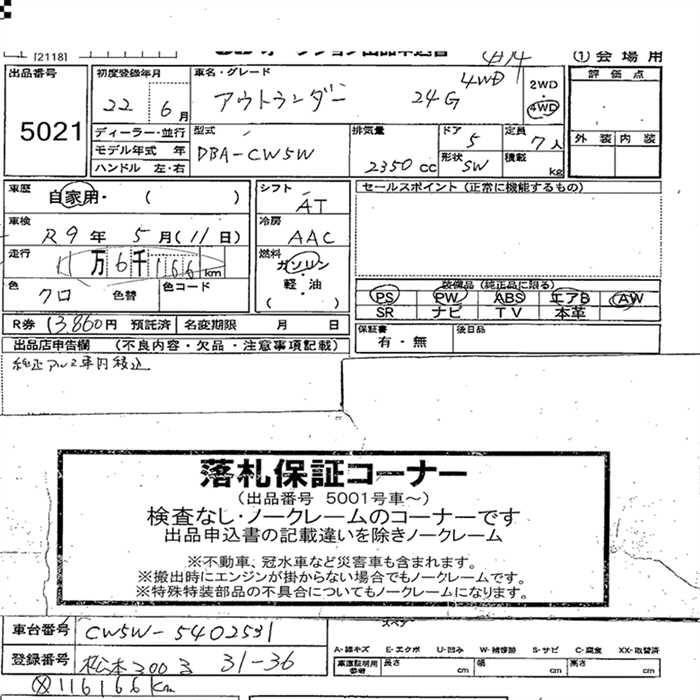 [2118]
① 会 場 用
出品番号
5021
初度登録年月
22 6月
車名・グレード
アウトランダー 24G 4WD
2WD
・
4WD
評 価 点
外 装 内 装
ディーラー・並行
モデル年式 年
ハンドル 左・右
型式
DBA-CW5W
排気量
2350 cc
ドア
5
形状
SW
定員
7人
積載
kg
車歴
自家用・ ( )
シフト
AT
セールスポイント (正常に機能するもの)
車検
R9年 5月(11日)
冷房
AAC
走行
11万6千166km
燃料
ガソリン
・
軽 油
( )
色
クロ
色替
色コード
装備品 (純正品に限る)
PS PW ABS エアB AW
SR ナビ TV 本革
R券 13,860円 預託済 名変期限 月 日
保証書
有・無
後日品
出品店申告欄 (不良内容・欠品・注意事項記載)
純正アルミ車内積込
落札保証コーナー
(出品番号 5001号車~)
検査なし・ノークレームのコーナーです
出品申込書の記載違いを除きノークレーム
※不動車、冠水車など災害車も含まれます。
※搬出時にエンジンが掛からない場合でもノークレームです。
※特殊特装部品の不具合についてもノークレームになります。
車台番号 CW5W-5402531
スペア
登録番号 松本 300 ろ 31-36
A-線キズ E-エクボ U-凹み W-補修跡 S-サビ C-腐食 XX-取替済
車庫証明用参考 長さ cm 幅 cm 高さ cm
ⓧ116166 Km